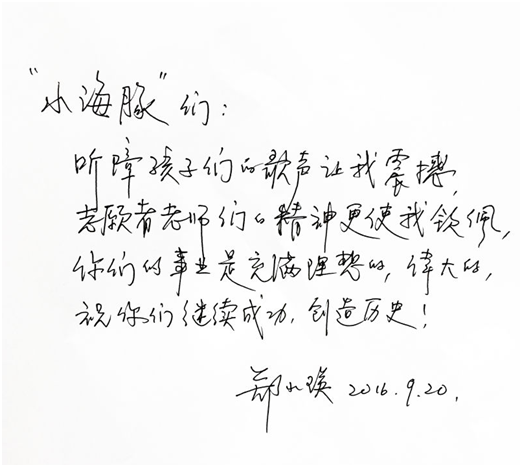 “小海豚”们:
听障孩子们的歌声让我震撼,
志愿者老师们的精神更使我钦佩,
你们的事业是充满理想的,伟大的,
祝你们继续成功,创造历史!
郑小瑛 2016.9.20.